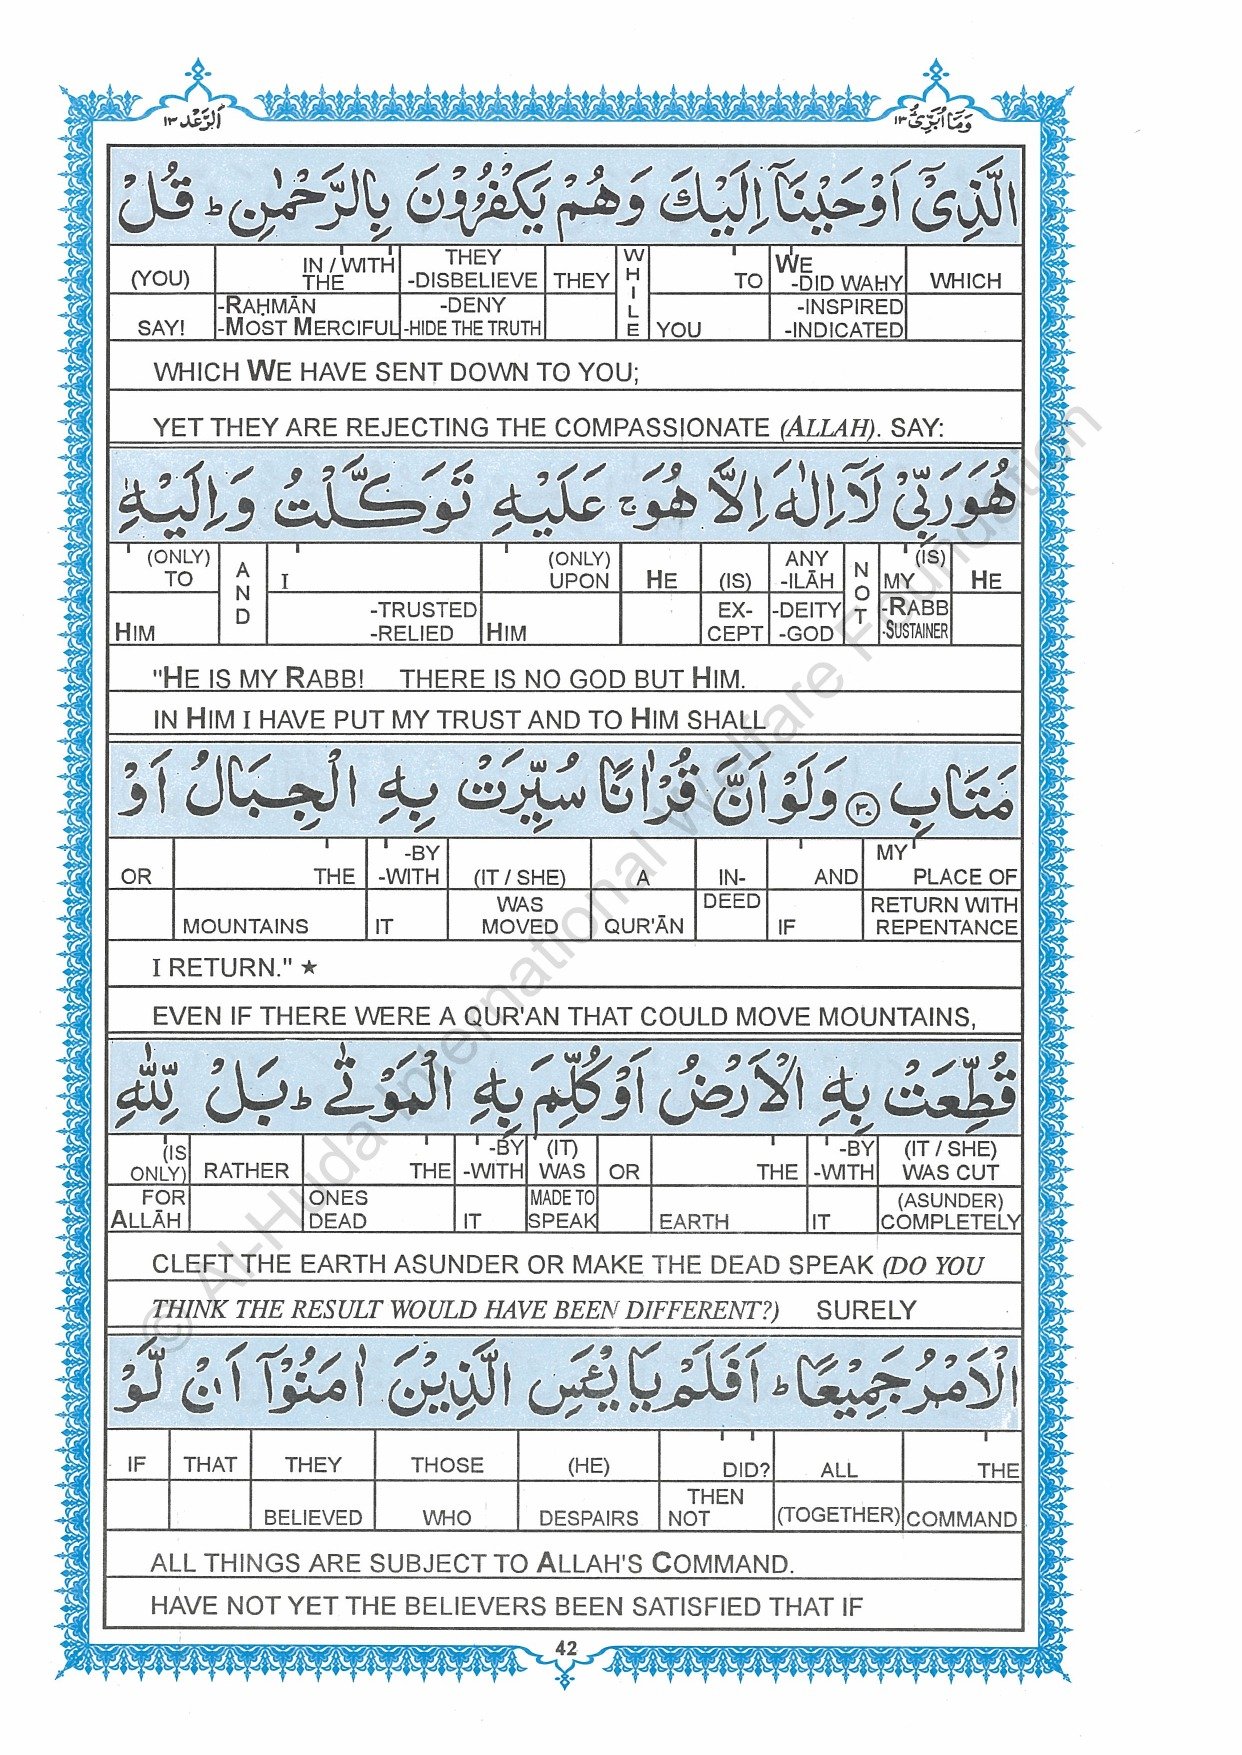 الرَّعْد ١٣ وَمَآ اُبَرِّئُ ١٣
الَّذِیْۤ اَوْحَیْنَاۤ اِلَیْكَ وَهُمْ یَكْفُرُوْنَ بِالرَّحْمٰنِ ؕ قُلْ
(YOU) IN / WITH THE THEY -DISBELIEVE THEY WHILE TO WE -DID WAHY WHICH
SAY! -RAḤMĀN -MOST MERCIFUL -DENY -HIDE THE TRUTH YOU -INSPIRED -INDICATED
WHICH WE HAVE SENT DOWN TO YOU;
YET THEY ARE REJECTING THE COMPASSIONATE (ALLAH). SAY:
هُوَ رَبِّیْ لَاۤ اِلٰهَ اِلَّا هُوَ ۚ عَلَیْهِ تَوَكَّلْتُ وَ اِلَیْهِ
(ONLY) TO AND I (ONLY) UPON HE (IS) ANY -ILĀH NOT MY (IS) HE
HIM -TRUSTED -RELIED HIM EX-CEPT -DEITY -GOD -RABB -SUSTAINER
"HE IS MY RABB! THERE IS NO GOD BUT HIM.
IN HIM I HAVE PUT MY TRUST AND TO HIM SHALL
مَتَابِ ﴿٣٠﴾ وَلَوْ اَنَّ قُرْاٰنًا سُیِّرَتْ بِهِ الْجِبَالُ اَوْ
OR THE -BY -WITH (IT / SHE) A IN- AND MY PLACE OF
MOUNTAINS IT WAS MOVED QUR'ĀN DEED IF RETURN WITH REPENTANCE
I RETURN." ★
EVEN IF THERE WERE A QUR'AN THAT COULD MOVE MOUNTAINS,
قُطِّعَتْ بِهِ الْاَرْضُ اَوْ كُلِّمَ بِهِ الْمَوْتٰى ؕ بَلْ لِّلّٰهِ
(IS ONLY) RATHER THE -BY -WITH (IT) WAS OR THE -BY -WITH (IT / SHE) WAS CUT
FOR ALLĀH ONES DEAD IT MADE TO SPEAK EARTH IT (ASUNDER) COMPLETELY
CLEFT THE EARTH ASUNDER OR MAKE THE DEAD SPEAK (DO YOU
THINK THE RESULT WOULD HAVE BEEN DIFFERENT?) SURELY
الْاَمْرُ جَمِیْعًا ؕ اَفَلَمْ یَایْـَٔسِ الَّذِیْنَ اٰمَنُوْۤا اَنْ لَّوْ
IF THAT THEY THOSE (HE) DID? ALL THE
BELIEVED WHO DESPAIRS THEN NOT (TOGETHER) COMMAND
ALL THINGS ARE SUBJECT TO ALLAH'S COMMAND.
HAVE NOT YET THE BELIEVERS BEEN SATISFIED THAT IF
42
© Al-Huda International Welfare Foundation